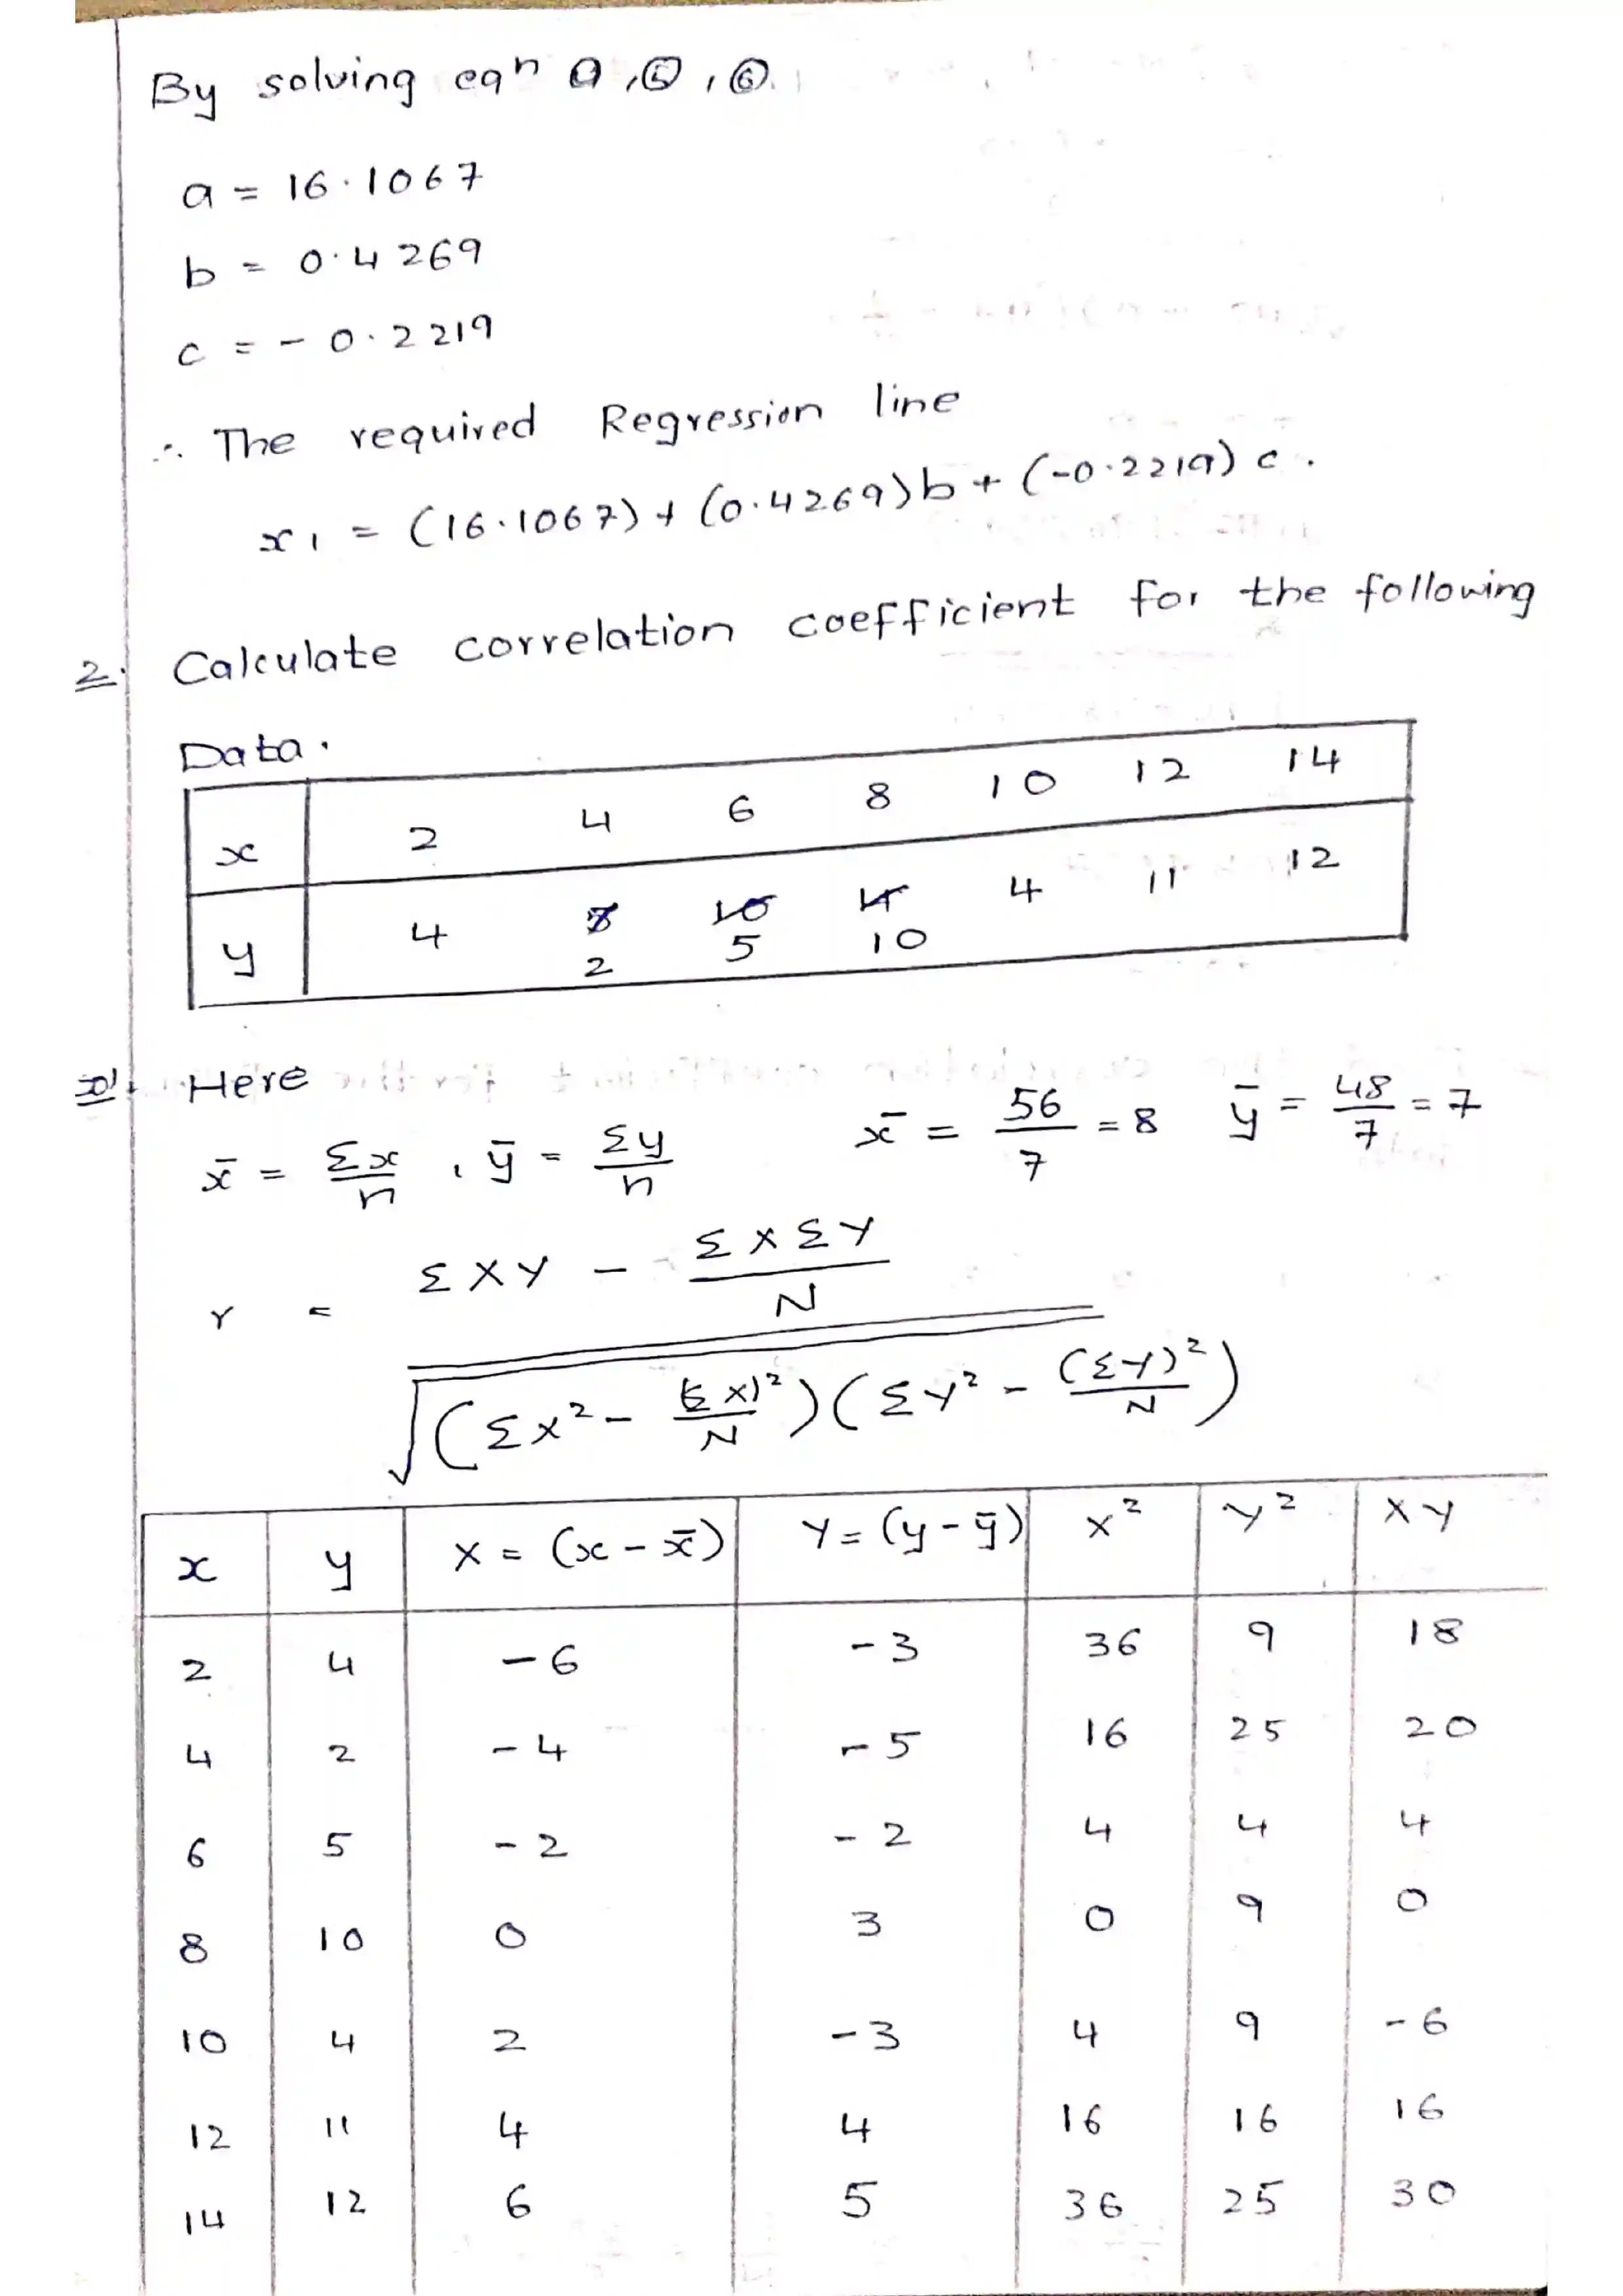 By solving eqn a, ⑤, ⑥.
a = 16.1067
b = 0.4269
c = - 0.2219
∴ The required Regression line
x1 = (16.1067) + (0.4269)b + (-0.2219) c.
2. Calculate correlation coefficient for the following
Data.
x 2 4 6 8 10 12 14
y 4 2 5 10 4 11 12
Here
x̄ = Σx/n , ȳ = Σy/n x̄ = 56/7 = 8 ȳ = 48/7 = 7
r = (ΣXY - ΣXΣY/N) / √((ΣX² - (ΣX)²/N)(ΣY² - (ΣY)²/N))
x y X = (x - x̄) Y = (y - ȳ) X² Y² XY
2 4 -6 -3 36 9 18
4 2 -4 -5 16 25 20
6 5 -2 -2 4 4 4
8 10 0 3 0 9 0
10 4 2 -3 4 9 -6
12 11 4 4 16 16 16
14 12 6 5 36 25 30